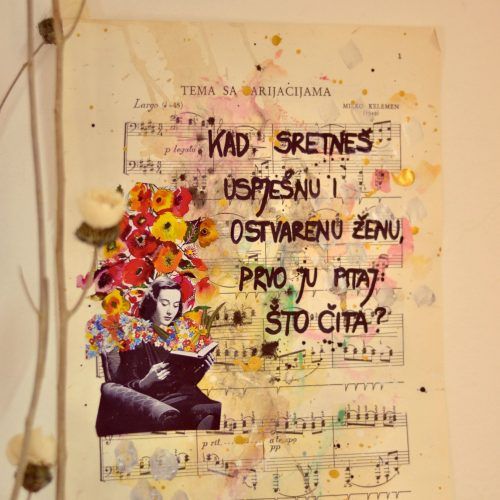 1
TEMA SA ARIJACIJAMA
Largo (♩=48)
MILKO KELEMEN
(1949)
p legato
KAD SRETNEŠ
USPJEŠNU I
OSTVARENU ŽENU,
PRVO JU PITAJ
ŠTO ČITA?
p rit.
a tempo
pp